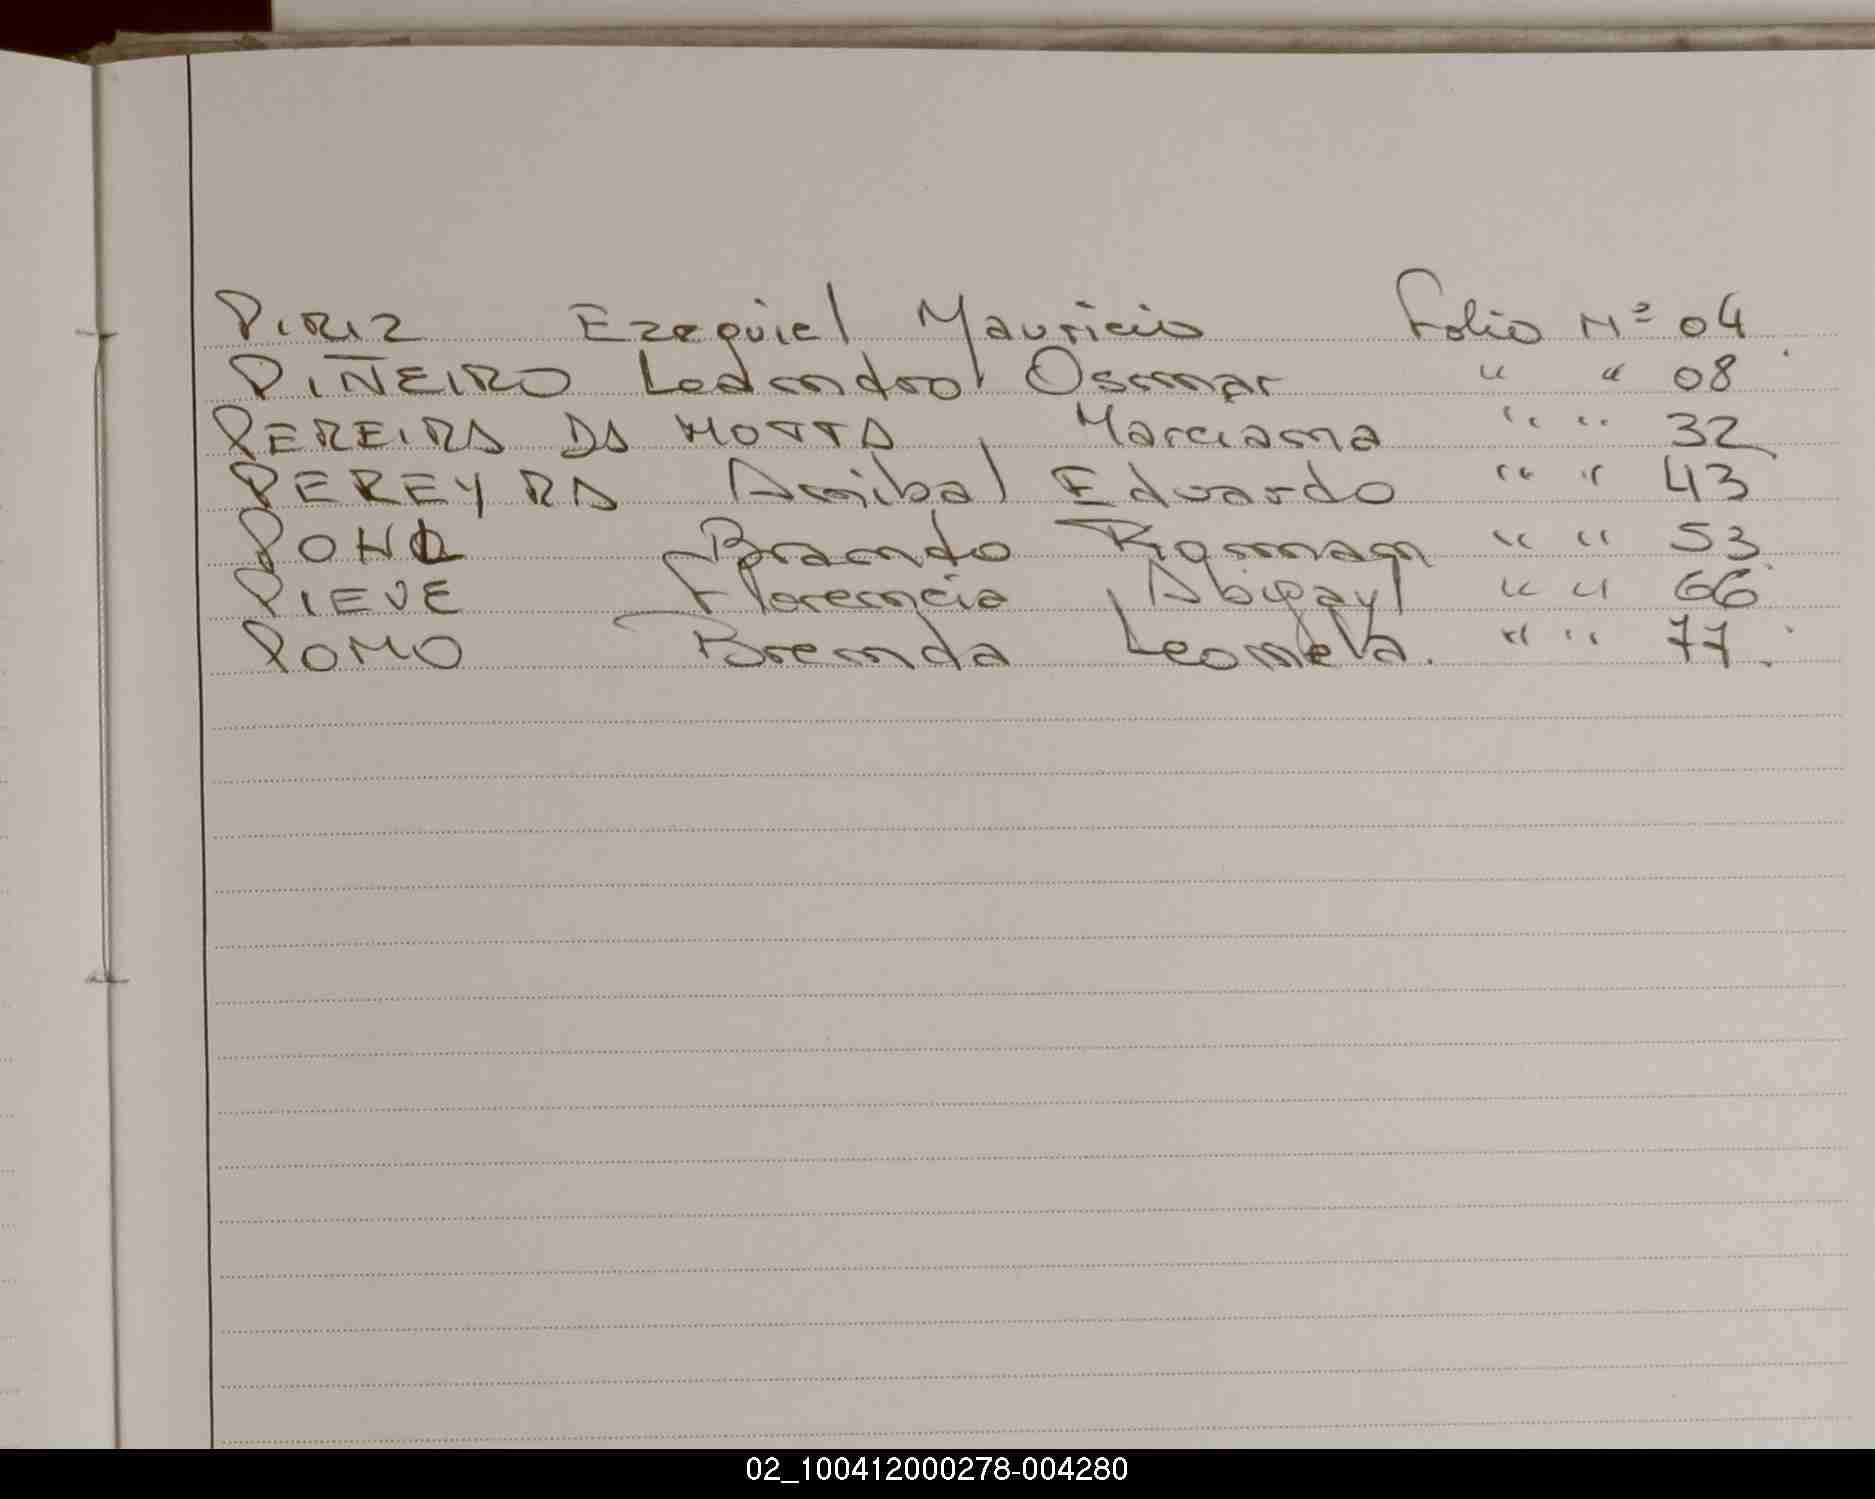 PIRIZ Ezequiel Mauricio Folio Nº 04
PIÑEIRO Leandro Osmar " " 08
PEREIRA DA MOTTA Marciana " " 32
PEREYRA Anibal Eduardo " " 43
POHL Brando Roman " " 53
PIEVE Florencia Abigayl " " 66
POMO Brenda Leonela. " " 77.
02_100412000278-004280